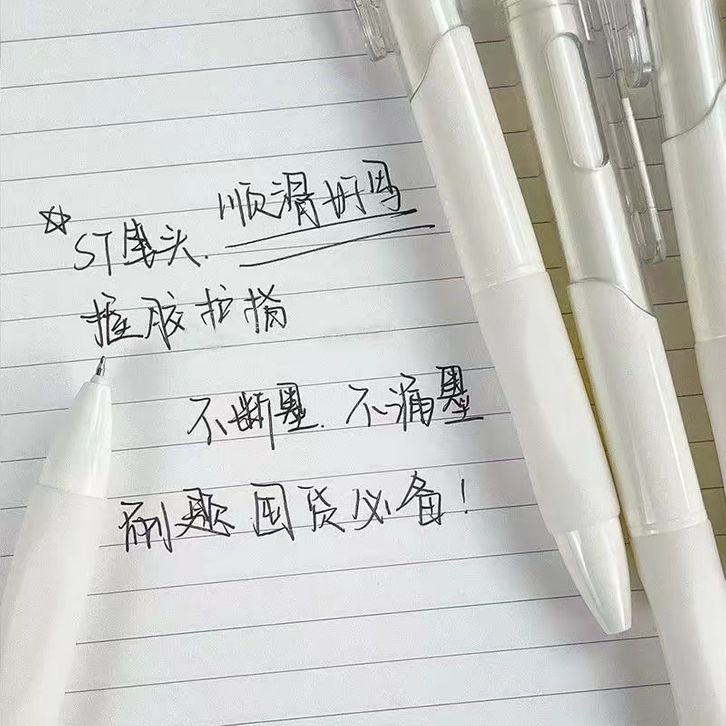 ☆ST笔头.顺滑好写
握胶护指
不断墨.不漏墨
刷题囤货必备！